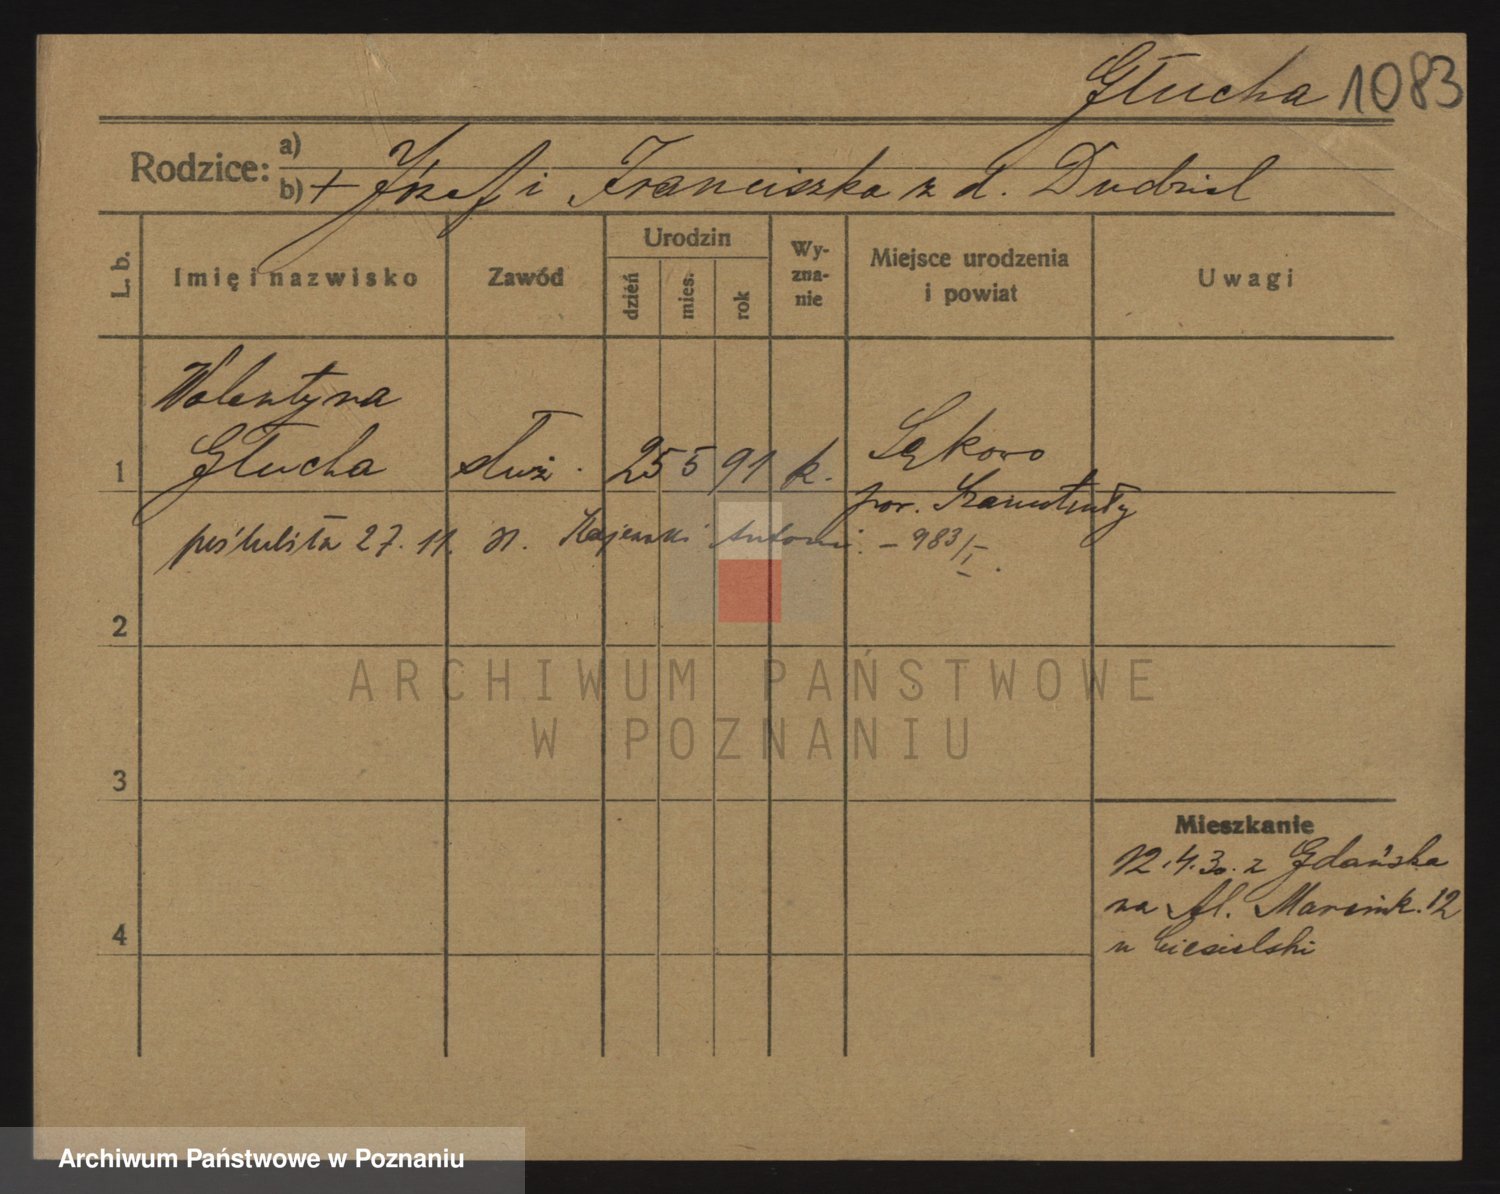 Głucha 1083
Rodzice: a)
b) + Józef i Franciszka z d. Dudziel
L. b. Imię i nazwisko Zawód Urodzin dzień mies. rok Wy-zna-nie Miejsce urodzenia i powiat Uwagi
Walentyna
1 Głucha służ. 25 5 91 k. Sękowo
pow. Szamotuły
poślubiła 27.11. 31. Antoni - 983/I.
2
ARCHIWUM PAŃSTWOWE
W POZNANIU
3
Mieszkanie
12.4.30. z Gdańska
na Al. Marcink. 12
4 u Ciesielski
Archiwum Państwowe w Poznaniu